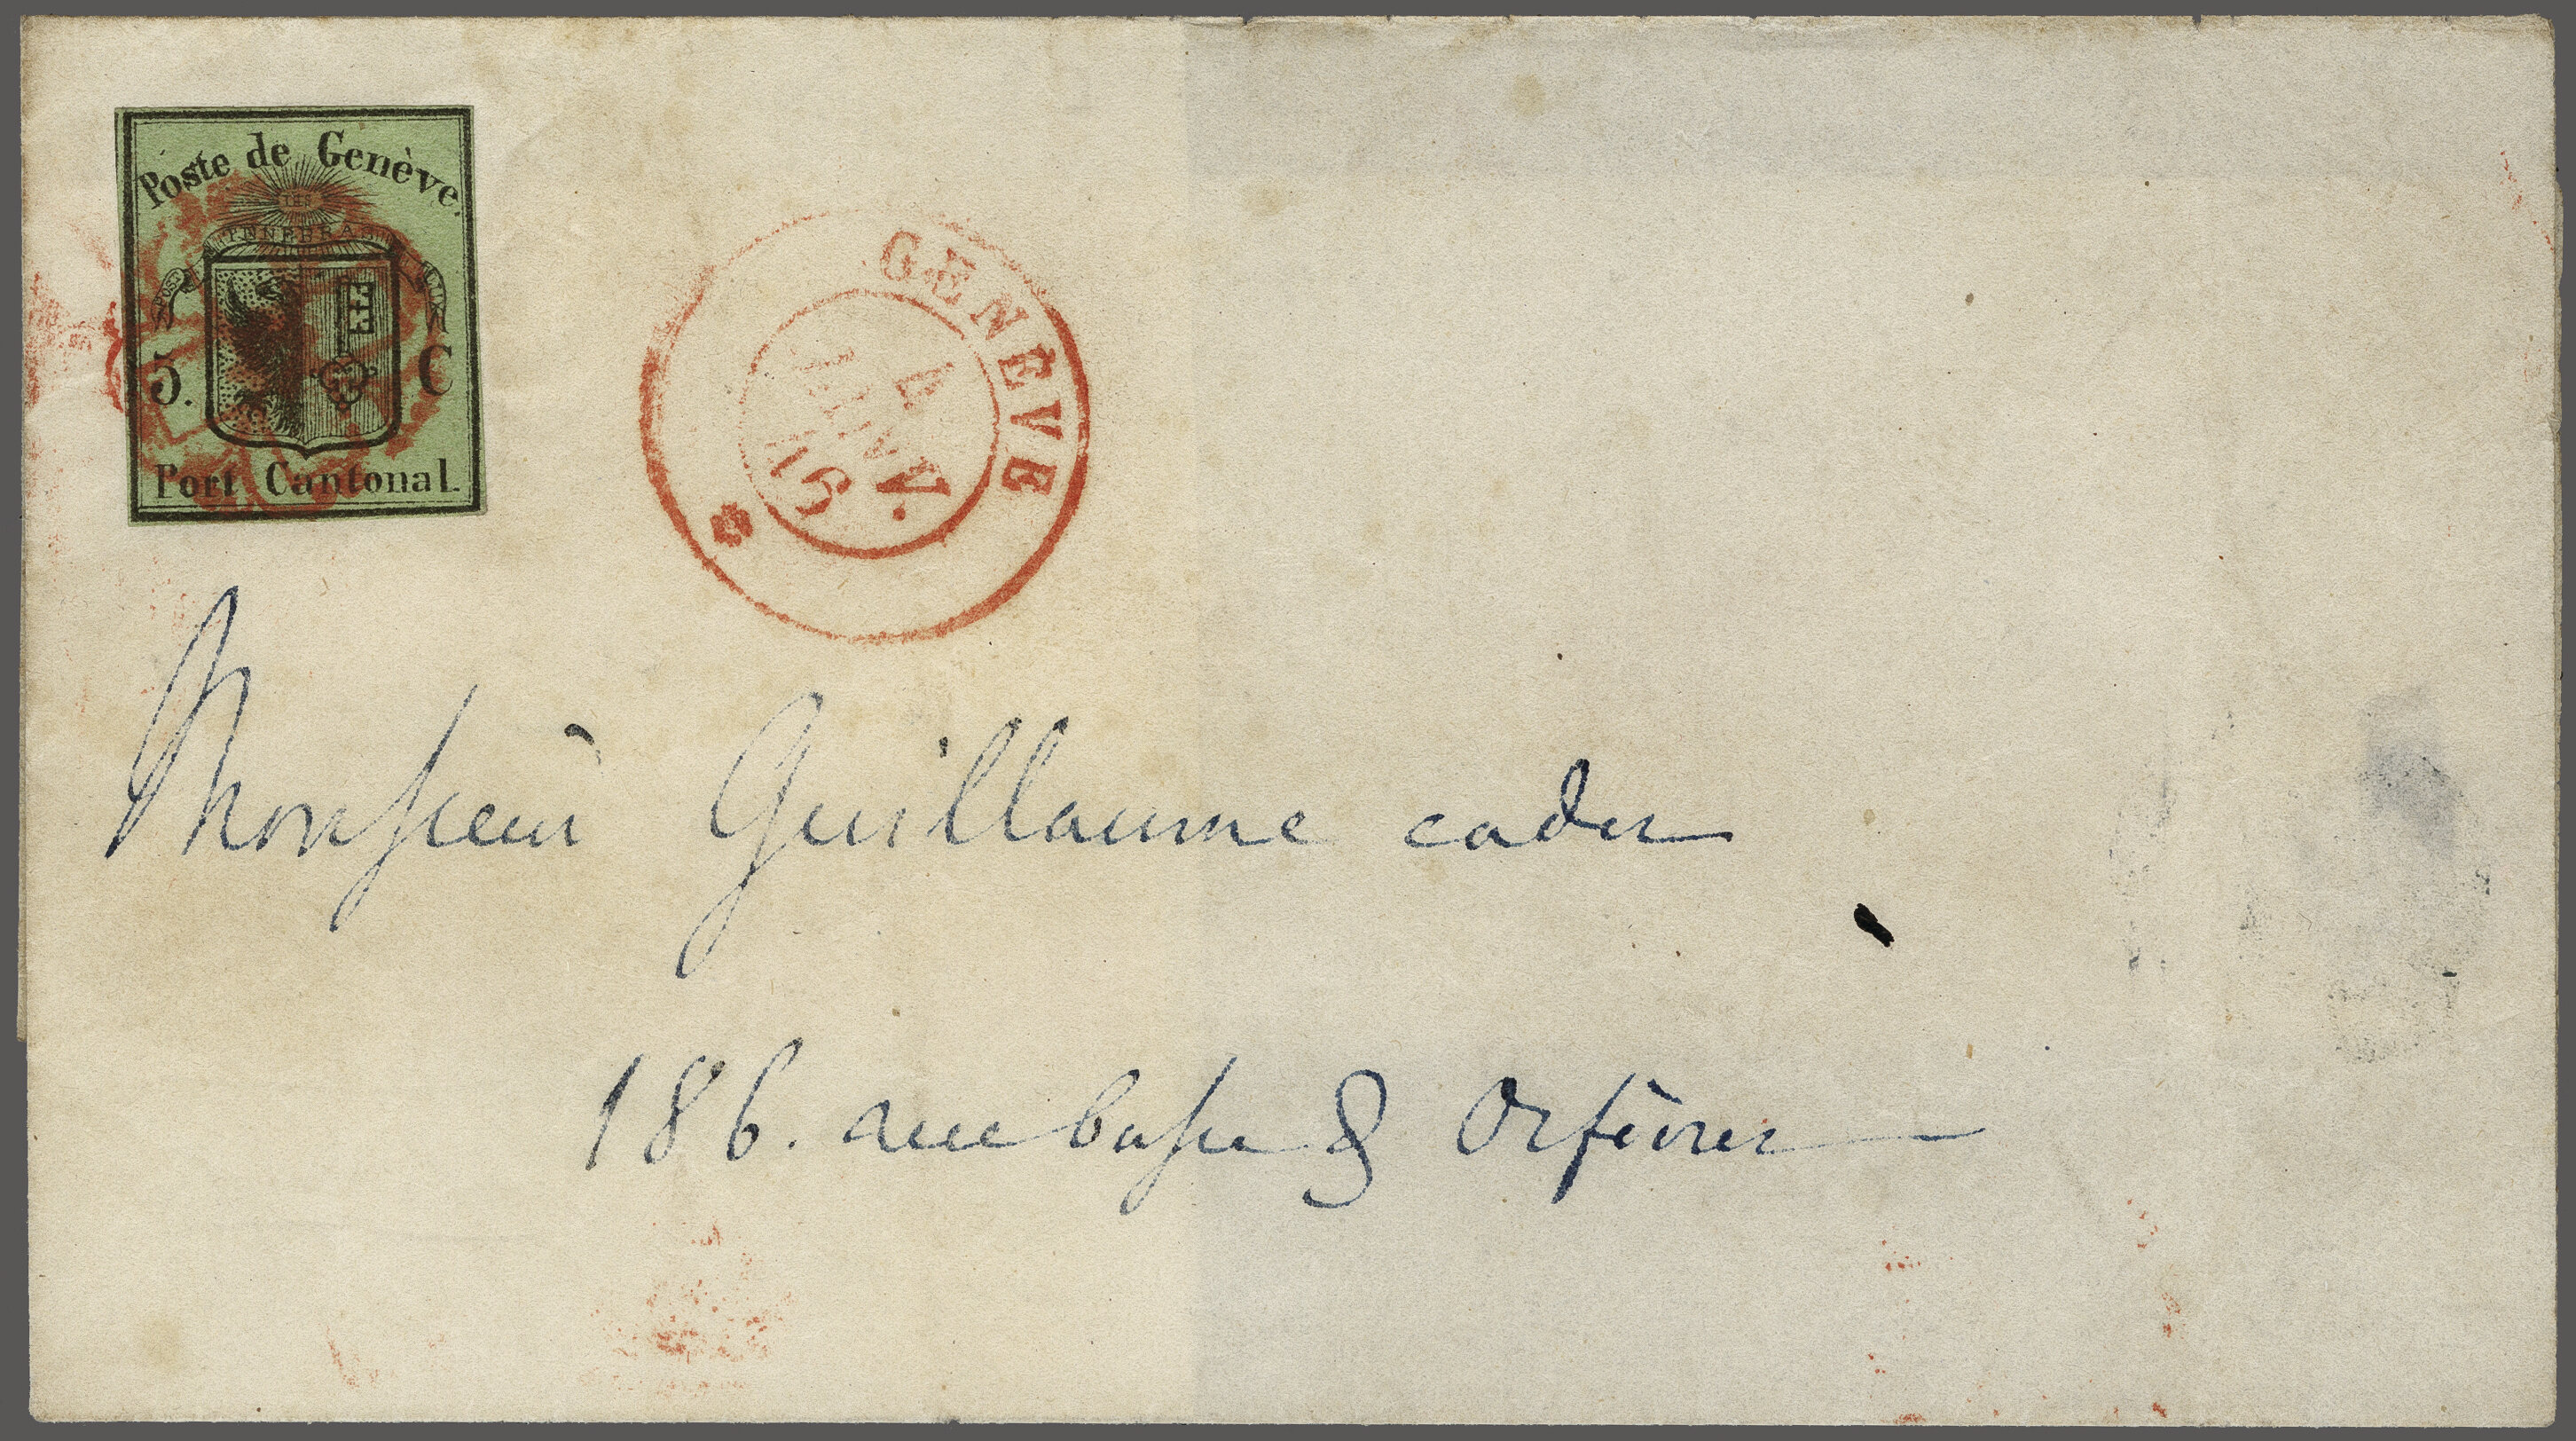 Poste de Genève.
POST TENEBRAS LUX
5. C
Port Cantonal.
GENEVE
4
46
Monsieur Guillaume cader
186. rue basse d Orfèvres